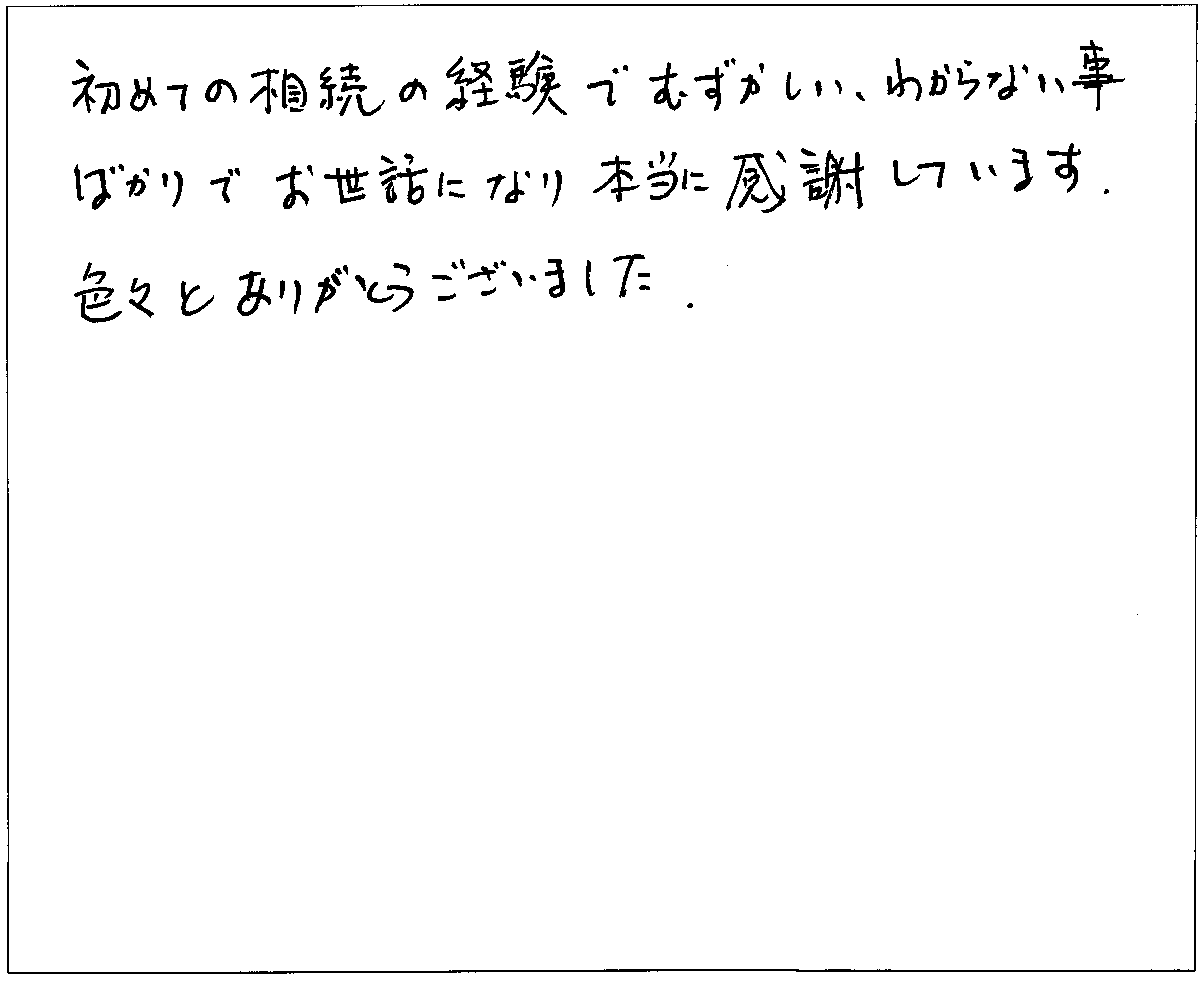 初めての相続の経験でむずかしい、わからない事
ばかりでお世話になり本当に感謝しています.
色々とありがとうございました.